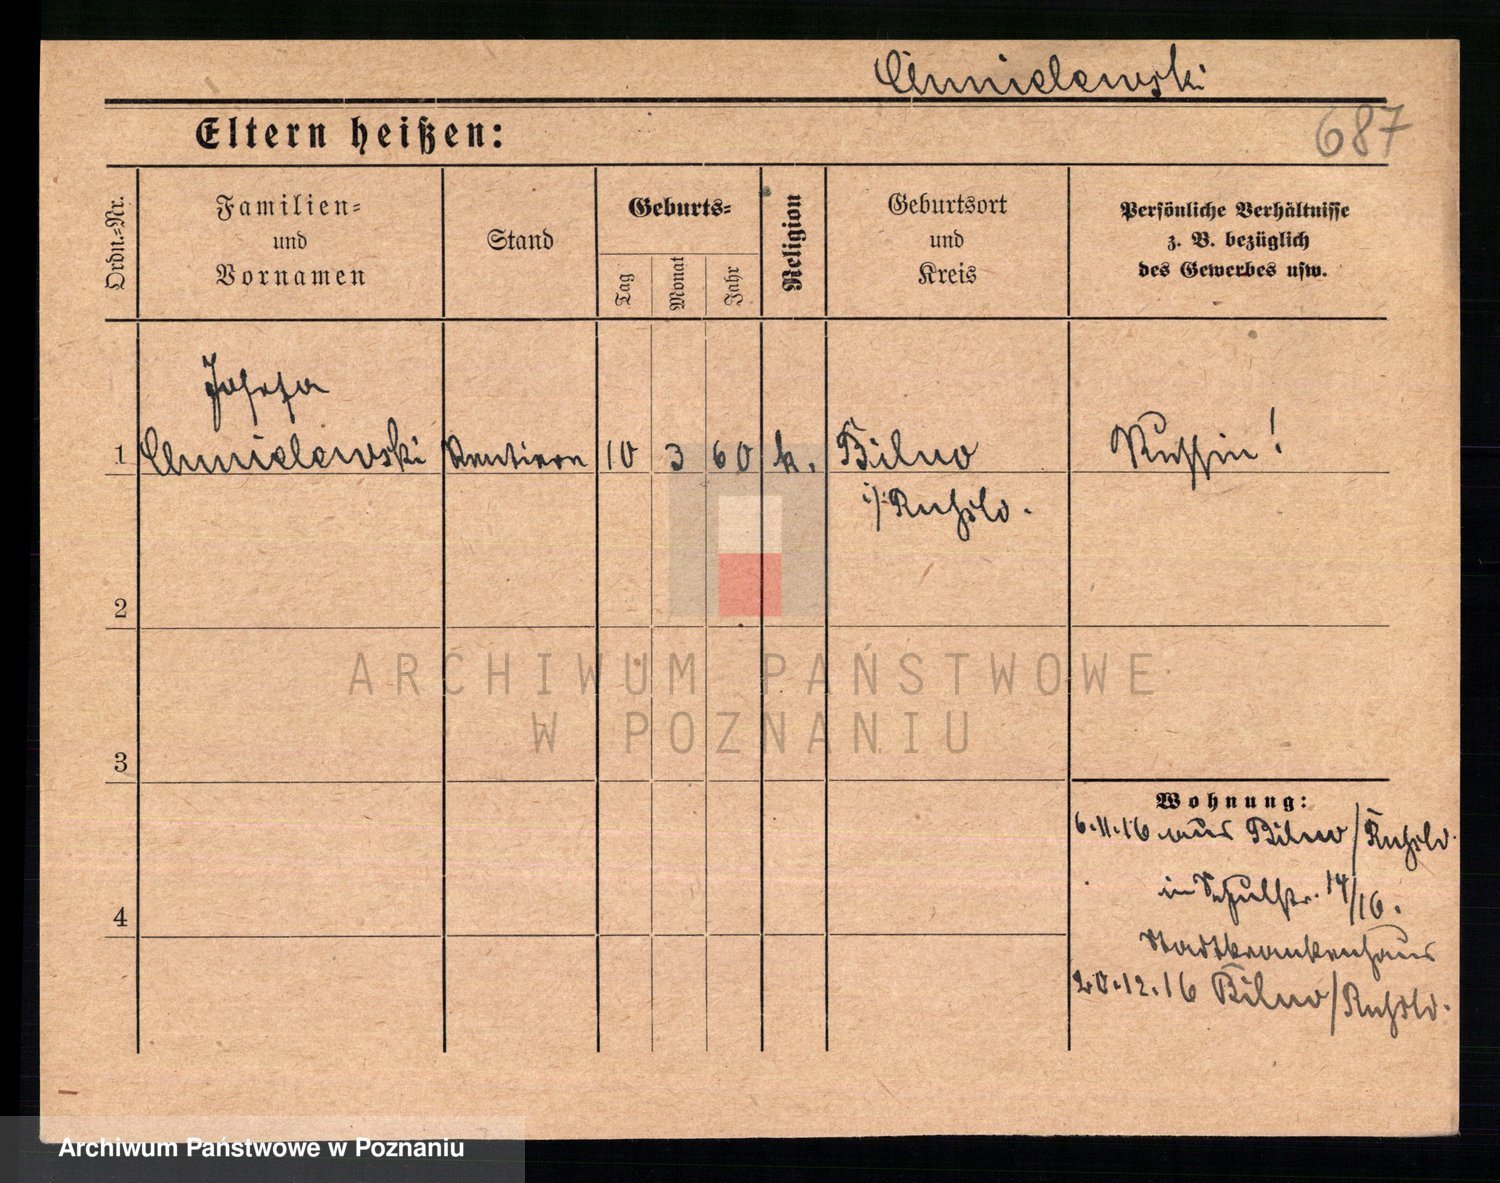 Chmielewski
687
Eltern heißen:
Ordn.-Nr.
Familien-
und
Vornamen
Stand
Geburts-
Tag
Monat
Jahr
Religion
Geburtsort
und
Kreis
Persönliche Verhältnisse
z. B. bezüglich
des Gewerbes usw.
Josefa
1 Chmielewski Rentiere 10 3 60 k. Bilno Russin!
i/Rußld.
2
3
4
Wohnung:
6.11.16 aus Bilno/Rußld.
in Schulstr. 14/16.
Stadtkrankenhaus
20.12.16 Bilno/Rußld.
ARCHIWUM PAŃSTWOWE
W POZNANIU
Archiwum Państwowe w Poznaniu